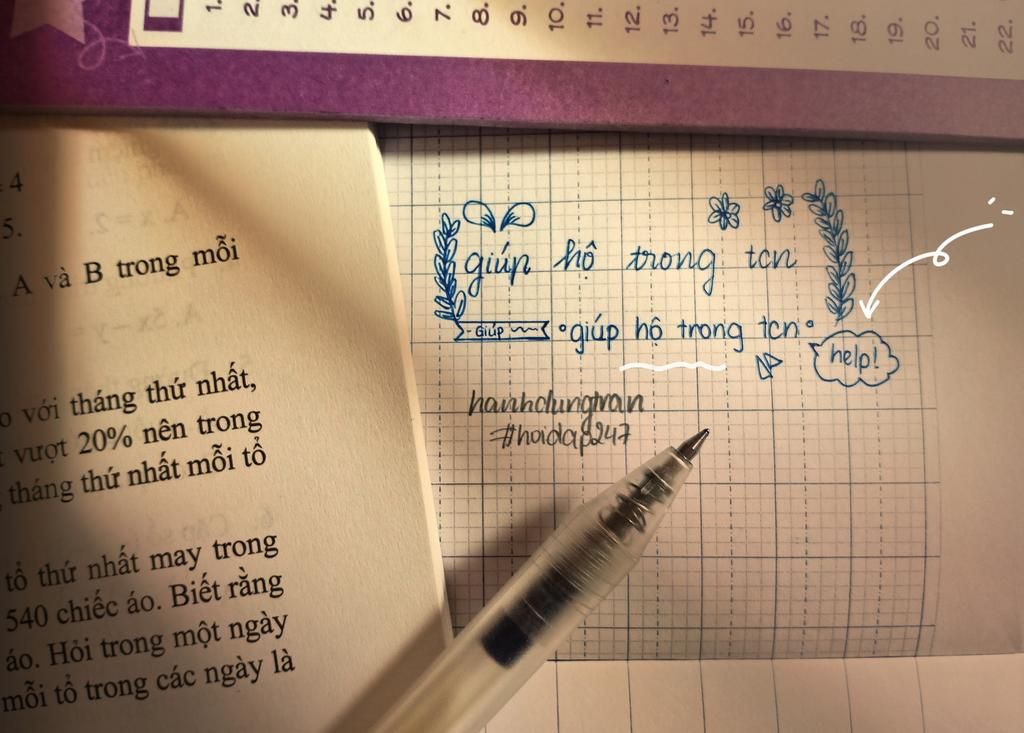 1. 2. 3. 4. 5. 6. 7. 8. 9. 10. 11. 12. 13. 14. 15. 16. 17. 18. 19. 20. 21. 22.
4
5.
A và B trong mỗi
với tháng thứ nhất,
vượt 20% nên trong
tháng thứ nhất mỗi tổ
tổ thứ nhất may trong
540 chiếc áo. Biết rằng
áo. Hỏi trong một ngày
mỗi tổ trong các ngày là
giúp hộ trong tcn
Giúp
giúp hộ trong tcn
help!
hanhdungtran
#hoidap247